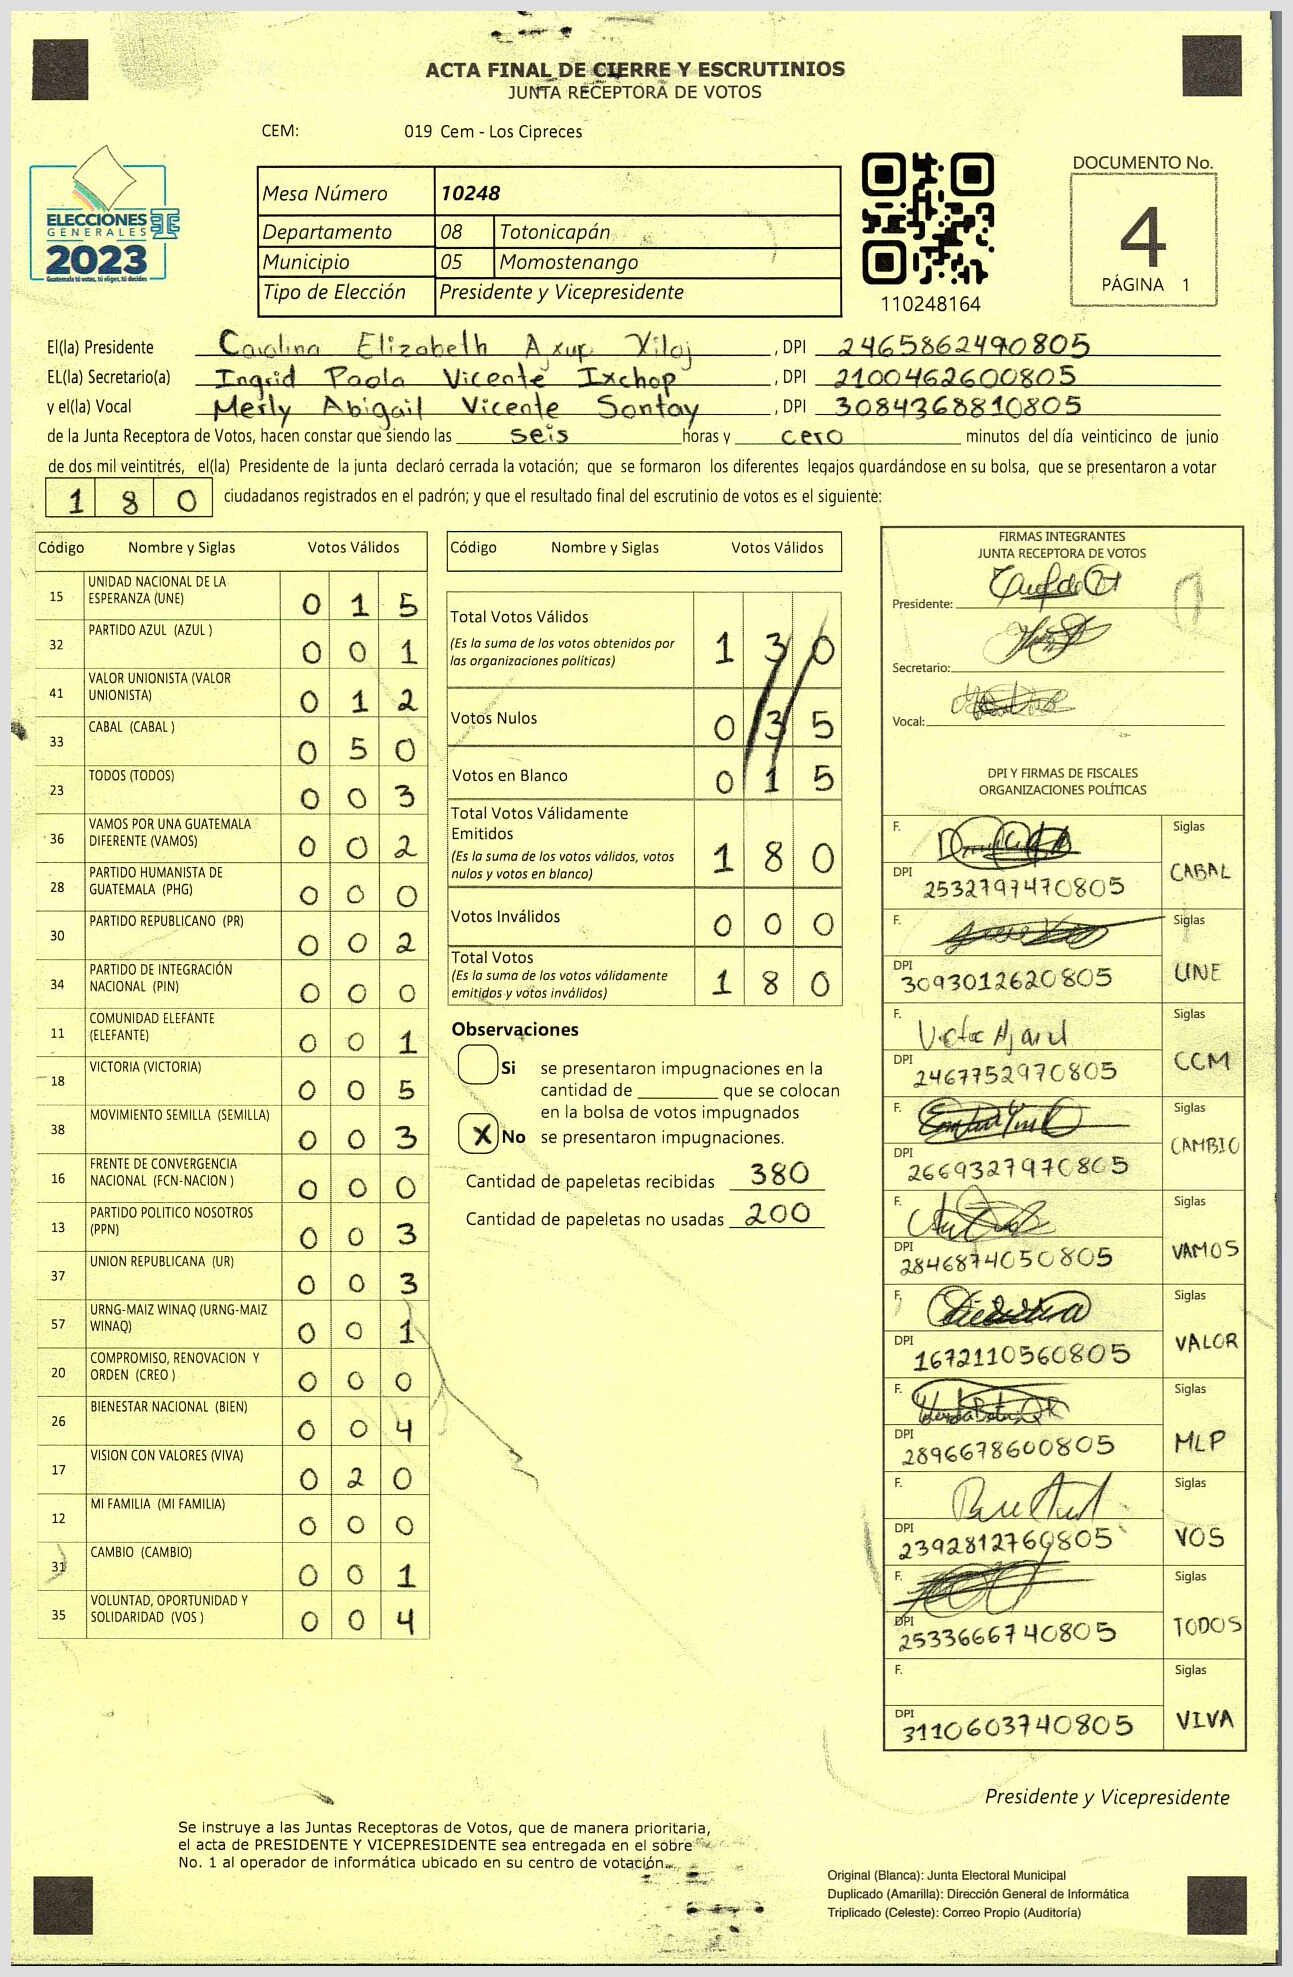 ACTA FINAL DE CIERRE Y ESCRUTINIOS
JUNTA RECEPTORA DE VOTOS
CEM: 019 Cem - Los Cipreces
ELECCIONES
GENERALES
2023
Guatemala tú votas, tú eliges, tú decides
Mesa Número 10248
Departamento 08 Totonicapán
Municipio 05 Momostenango
Tipo de Elección Presidente y Vicepresidente
110248164
DOCUMENTO No.
4
PÁGINA 1
El(la) Presidente Carolina Elizabeth Axup Xiloj, DPI 2465862490805
EL(la) Secretario(a) Ingrid Paola Vicente Ixchop, DPI 2100462600805
y el(la) Vocal Merly Abigail Vicente Sontay, DPI 3084368810805
de la Junta Receptora de Votos, hacen constar que siendo las seis horas y cero minutos del día veinticinco de junio
de dos mil veintitrés, el(la) Presidente de la junta declaró cerrada la votación; que se formaron los diferentes legajos guardándose en su bolsa, que se presentaron a votar
180 ciudadanos registrados en el padrón; y que el resultado final del escrutinio de votos es el siguiente:
Código Nombre y Siglas Votos Válidos
15 UNIDAD NACIONAL DE LA ESPERANZA (UNE) 0 1 5
32 PARTIDO AZUL (AZUL ) 0 0 1
41 VALOR UNIONISTA (VALOR UNIONISTA) 0 1 2
33 CABAL (CABAL ) 0 5 0
23 TODOS (TODOS) 0 0 3
36 VAMOS POR UNA GUATEMALA DIFERENTE (VAMOS) 0 0 2
28 PARTIDO HUMANISTA DE GUATEMALA (PHG) 0 0 0
30 PARTIDO REPUBLICANO (PR) 0 0 2
34 PARTIDO DE INTEGRACIÓN NACIONAL (PIN) 0 0 0
11 COMUNIDAD ELEFANTE (ELEFANTE) 0 0 1
18 VICTORIA (VICTORIA) 0 0 5
38 MOVIMIENTO SEMILLA (SEMILLA) 0 0 3
16 FRENTE DE CONVERGENCIA NACIONAL (FCN-NACION ) 0 0 0
13 PARTIDO POLITICO NOSOTROS (PPN) 0 0 3
37 UNION REPUBLICANA (UR) 0 0 3
57 URNG-MAIZ WINAQ (URNG-MAIZ WINAQ) 0 0 1
20 COMPROMISO, RENOVACION Y ORDEN (CREO ) 0 0 0
26 BIENESTAR NACIONAL (BIEN) 0 0 4
17 VISION CON VALORES (VIVA) 0 2 0
12 MI FAMILIA (MI FAMILIA) 0 0 0
31 CAMBIO (CAMBIO) 0 0 1
35 VOLUNTAD, OPORTUNIDAD Y SOLIDARIDAD (VOS ) 0 0 4
Código Nombre y Siglas Votos Válidos
Total Votos Válidos 1 3 0
(Es la suma de los votos obtenidos por
las organizaciones políticas)
Votos Nulos 0 3 5
Votos en Blanco 0 1 5
Total Votos Válidamente
Emitidos 1 8 0
(Es la suma de los votos válidos, votos
nulos y votos en blanco)
Votos Inválidos 0 0 0
Total Votos 1 8 0
(Es la suma de los votos válidamente
emitidos y votos inválidos)
Observaciones
Si se presentaron impugnaciones en la
cantidad de ________ que se colocan
en la bolsa de votos impugnados
X No se presentaron impugnaciones.
Cantidad de papeletas recibidas 380
Cantidad de papeletas no usadas 200
FIRMAS INTEGRANTES
JUNTA RECEPTORA DE VOTOS
Presidente:
Secretario:
Vocal:
DPI Y FIRMAS DE FISCALES
ORGANIZACIONES POLÍTICAS
F. Siglas
DPI 2532797470805 CABAL
F. Siglas
DPI 3093012620805 UNE
F. Victor Siglas
DPI 2467752970805 CCM
F. Siglas
DPI 2669327970805 CAMBIO
F. Siglas
DPI 2846874050805 VAMOS
F. Siglas
DPI 1672110560805 VALOR
F. Siglas
DPI 2896678600805 MLP
F. Siglas
DPI 2392812760805 VOS
F. Siglas
DPI 2533666740805 TODOS
F. Siglas
DPI 3110603740805 VIVA
Presidente y Vicepresidente
Se instruye a las Juntas Receptoras de Votos, que de manera prioritaria,
el acta de PRESIDENTE Y VICEPRESIDENTE sea entregada en el sobre
No. 1 al operador de informática ubicado en su centro de votación.
Original (Blanca): Junta Electoral Municipal
Duplicado (Amarilla): Dirección General de Informática
Triplicado (Celeste): Correo Propio (Auditoría)